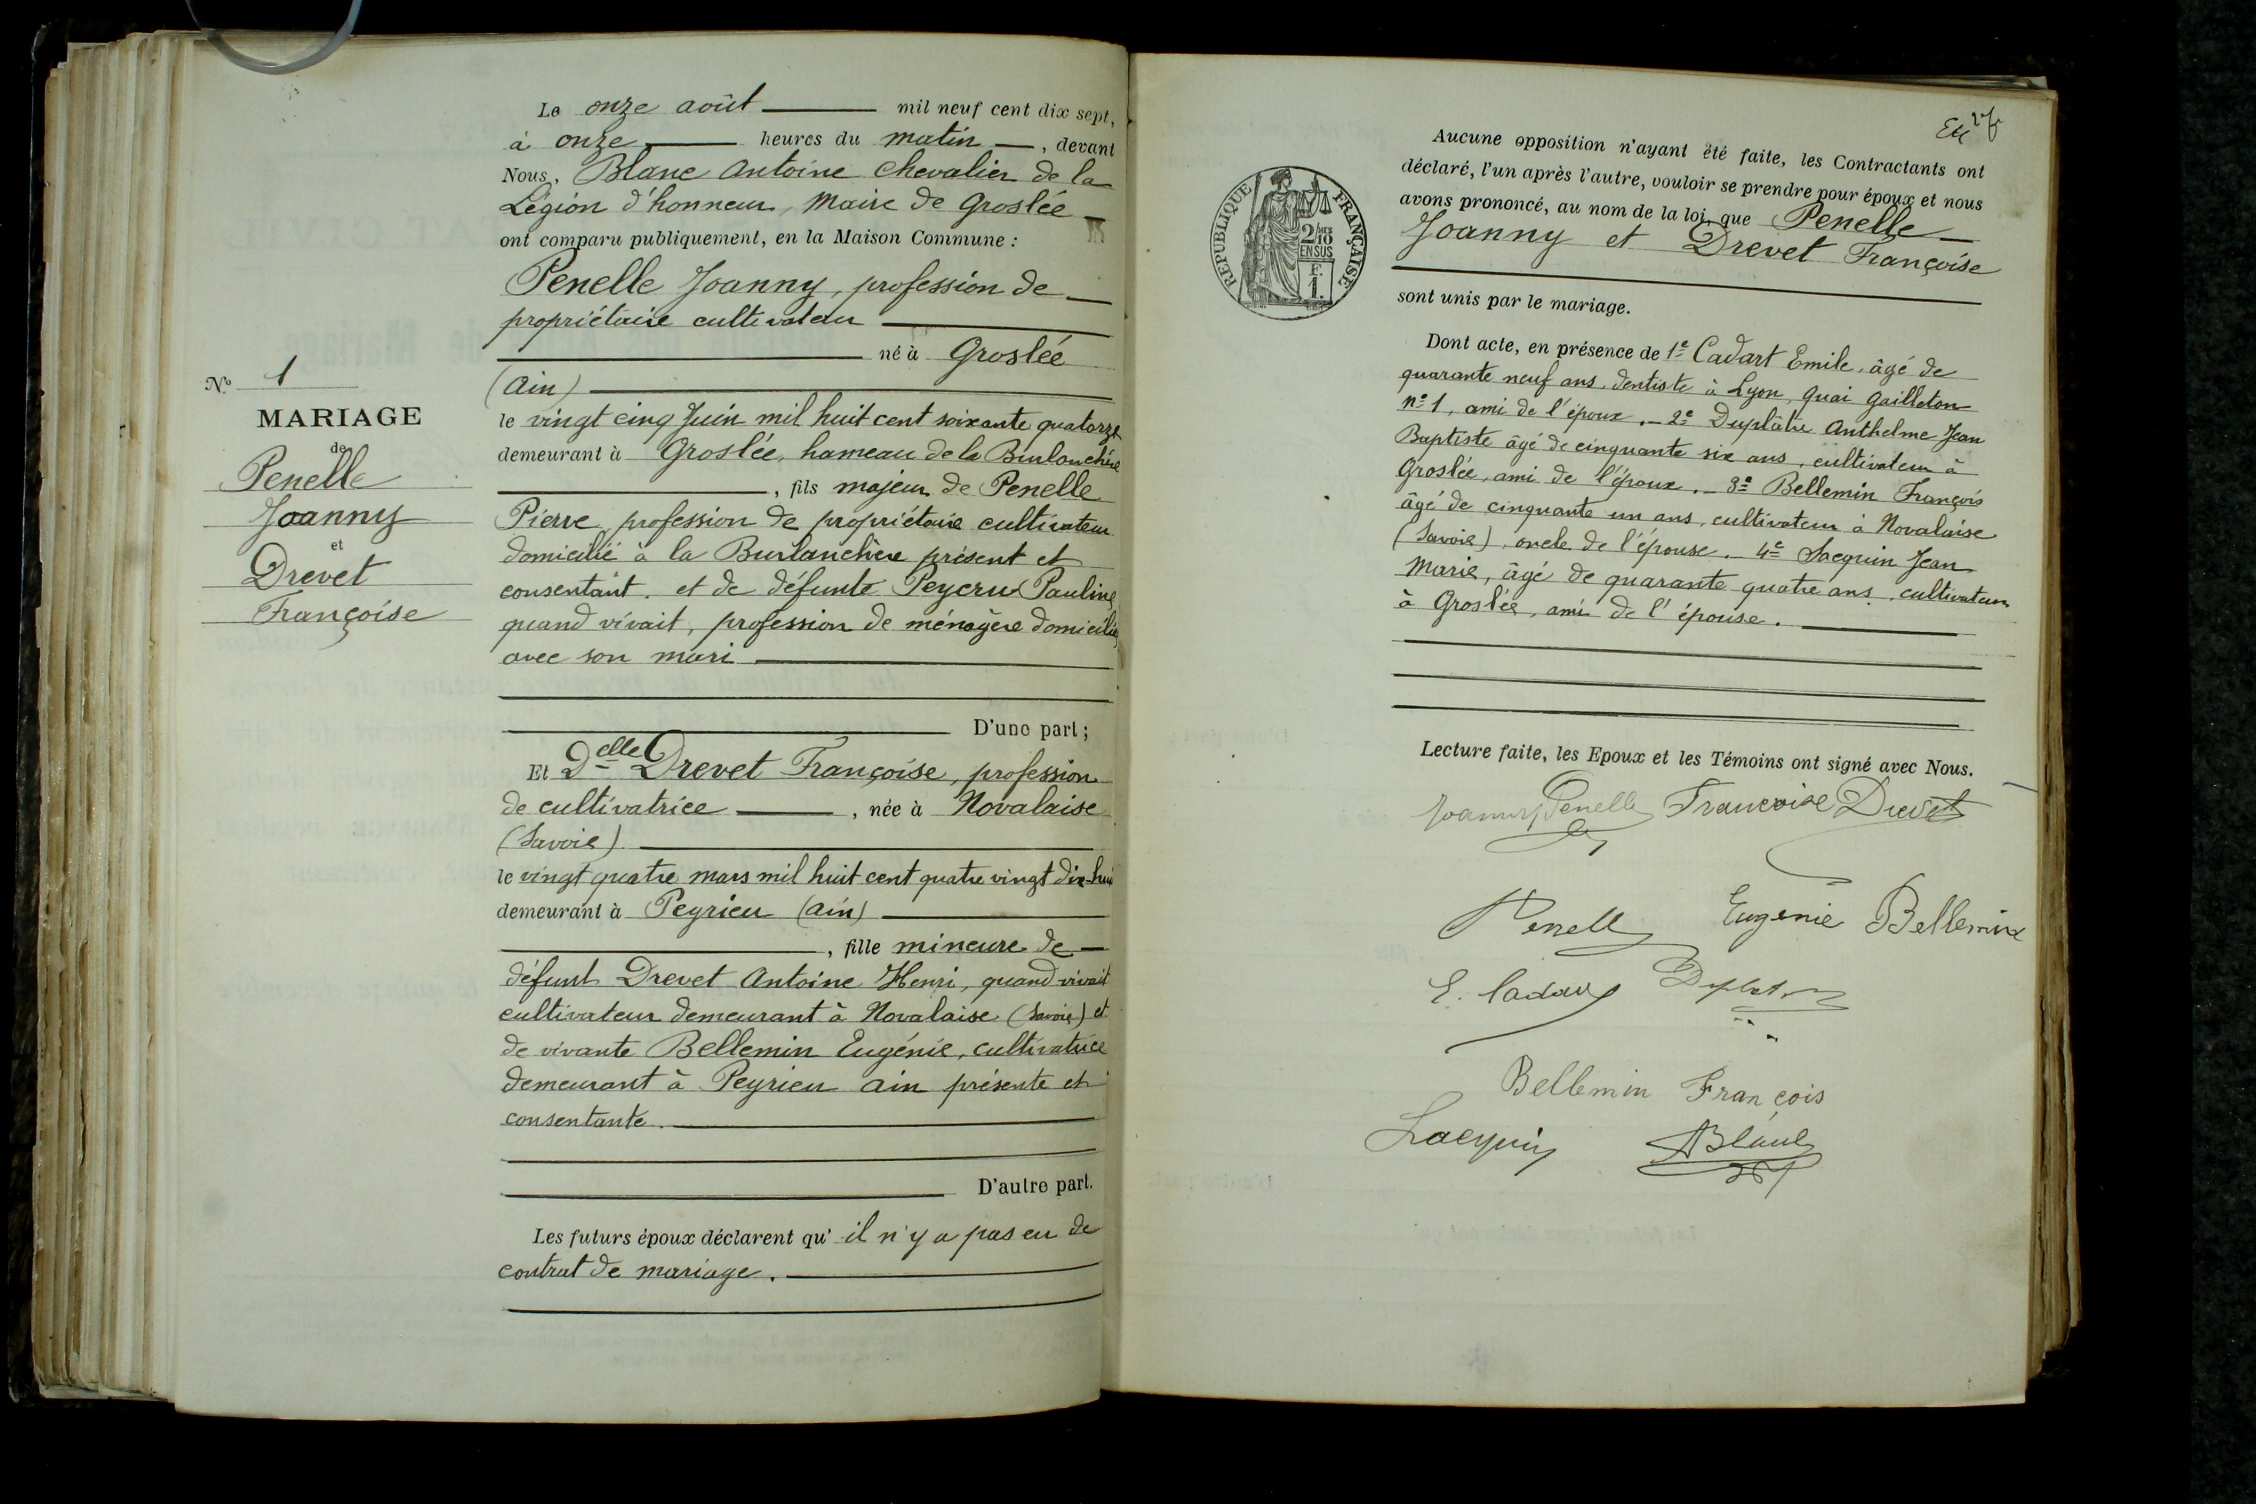 Le onze août mil neuf cent dix sept,
à onze heures du matin, devant
Nous, Blanc Antoine Chevalier de la
Légion d'honneur, Maire de Groslée
ont comparu publiquement, en la Maison Commune :
Penelle Joanny, profession de
propriétaire cultivateur
né à Groslée
(Ain)
le vingt cinq Juin mil huit cent soixante quatorze
demeurant à Groslée, hameau de la Burlanchère
, fils majeur de Penelle
Pierre, profession de propriétaire cultivateur
domicilié à la Burlanchère présent et
consentant. et de défunte Peycru Pauline
quand vivait, profession de ménagère domiciliée
avec son mari
D'une part ;
Nº 1
MARIAGE
de
Penelle
Joanny
et
Drevet
Françoise
Et Delle Drevet Françoise, profession
de cultivatrice, née à Novalaise
(Savoie)
le vingt quatre mars mil huit cent quatre vingt dix-huit
demeurant à Peyrieu (Ain)
, fille mineure de
défunt Drevet Antoine Henri, quand vivait
cultivateur demeurant à Novalaise (Savoie) et
de vivante Bellemin Eugénie, cultivatrice
demeurant à Peyrieu Ain présente et
consentante.
D'autre part.
Les futurs époux déclarent qu'il n'y a pas eu de
contrat de mariage.
Aucune opposition n'ayant été faite, les Contractants ont
déclaré, l'un après l'autre, vouloir se prendre pour époux et nous
avons prononcé, au nom de la loi, que Penelle
Joanny et Drevet Françoise
sont unis par le mariage.
RÉPUBLIQUE FRANÇAISE
2/10
EN SUS
F.
1.
Dont acte, en présence de 1º Cadart Emile, âgé de
quarante neuf ans, dentiste à Lyon, Quai Gailleton
nº 1, ami de l'époux. - 2º Duplâtre Anthelme Jean
Baptiste âgé de cinquante six ans, cultivateur à
Groslée, ami de l'époux. - 3º Bellemin François
âgé de cinquante un ans, cultivateur à Novalaise
(Savoie), oncle de l'épouse. - 4º Jacquin Jean
Marie, âgé de quarante quatre ans, cultivateur
à Groslée, ami de l'épouse.
Lecture faite, les Epoux et les Témoins ont signé avec Nous.
Joanny Penelle Francoise Drevet
Penelle Eugenie Bellemin
E. Cadart
Bellemin François
Jacquin ABlanc